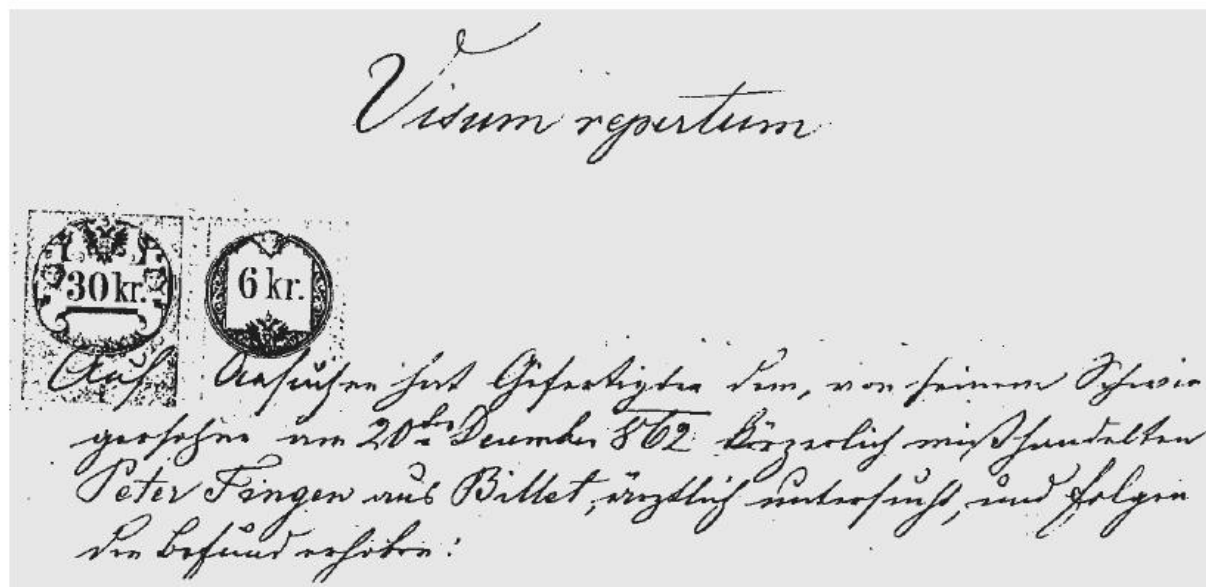 Visum repertum
30 kr. 6 kr.
Auf Ansuchen hat Gefertigter dem, von seinem Schwie
gersohne am 20ten December 862 körperlich mißhandelten
Peter Fingen aus Billet, ärztlich untersucht, und folgen
den Befund erhoben: